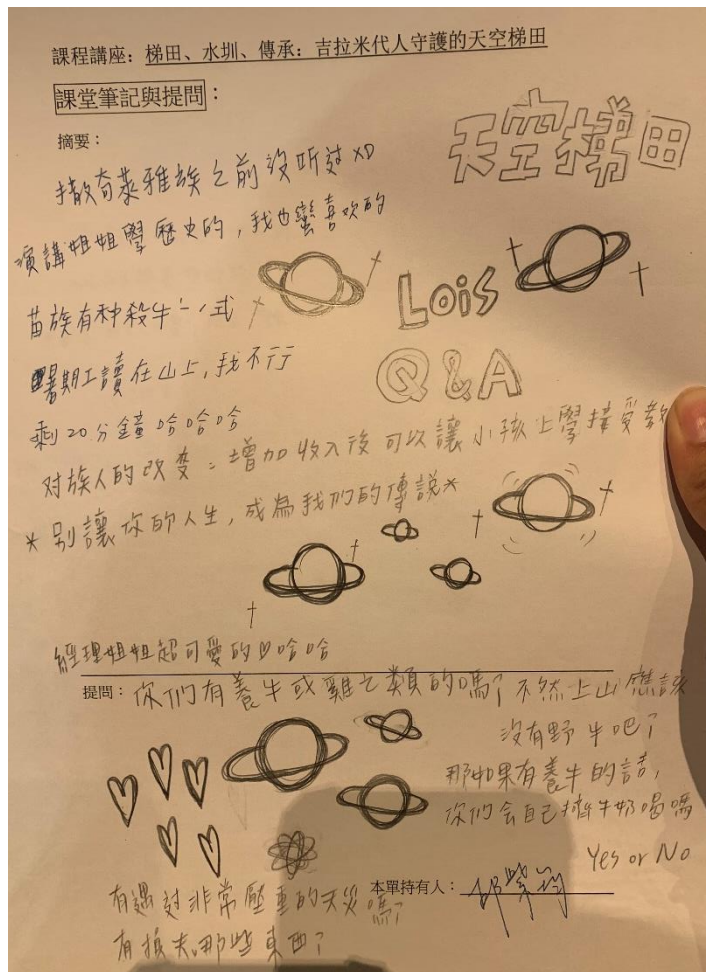 課程講座：梯田、水圳、傳承：吉拉米代人守護的天空梯田
課堂筆記與提問：
摘要：
天空梯田
撒奇萊雅族之前沒听过XD
演講姐姐學歷史的，我也蠻喜欢的
苗族有种殺牛一ノ式
Lois
暑期工讀在山上，我不行
Q&A
剩20分鐘哈哈哈
对族人的改变：增加收入後可以讓小孩上學接受教
*別讓你的人生，成為我们的傳說*
經理姐姐超可愛的♡哈哈
提問：你们有養牛或雞之類的嗎？不然上山應該
沒有野牛吧？
那如果有養牛的話，
你们会自己擠牛奶喝嗎
Yes or No
本單持有人：
有遇过非常嚴重的天災嗎？
有損失哪些東西？